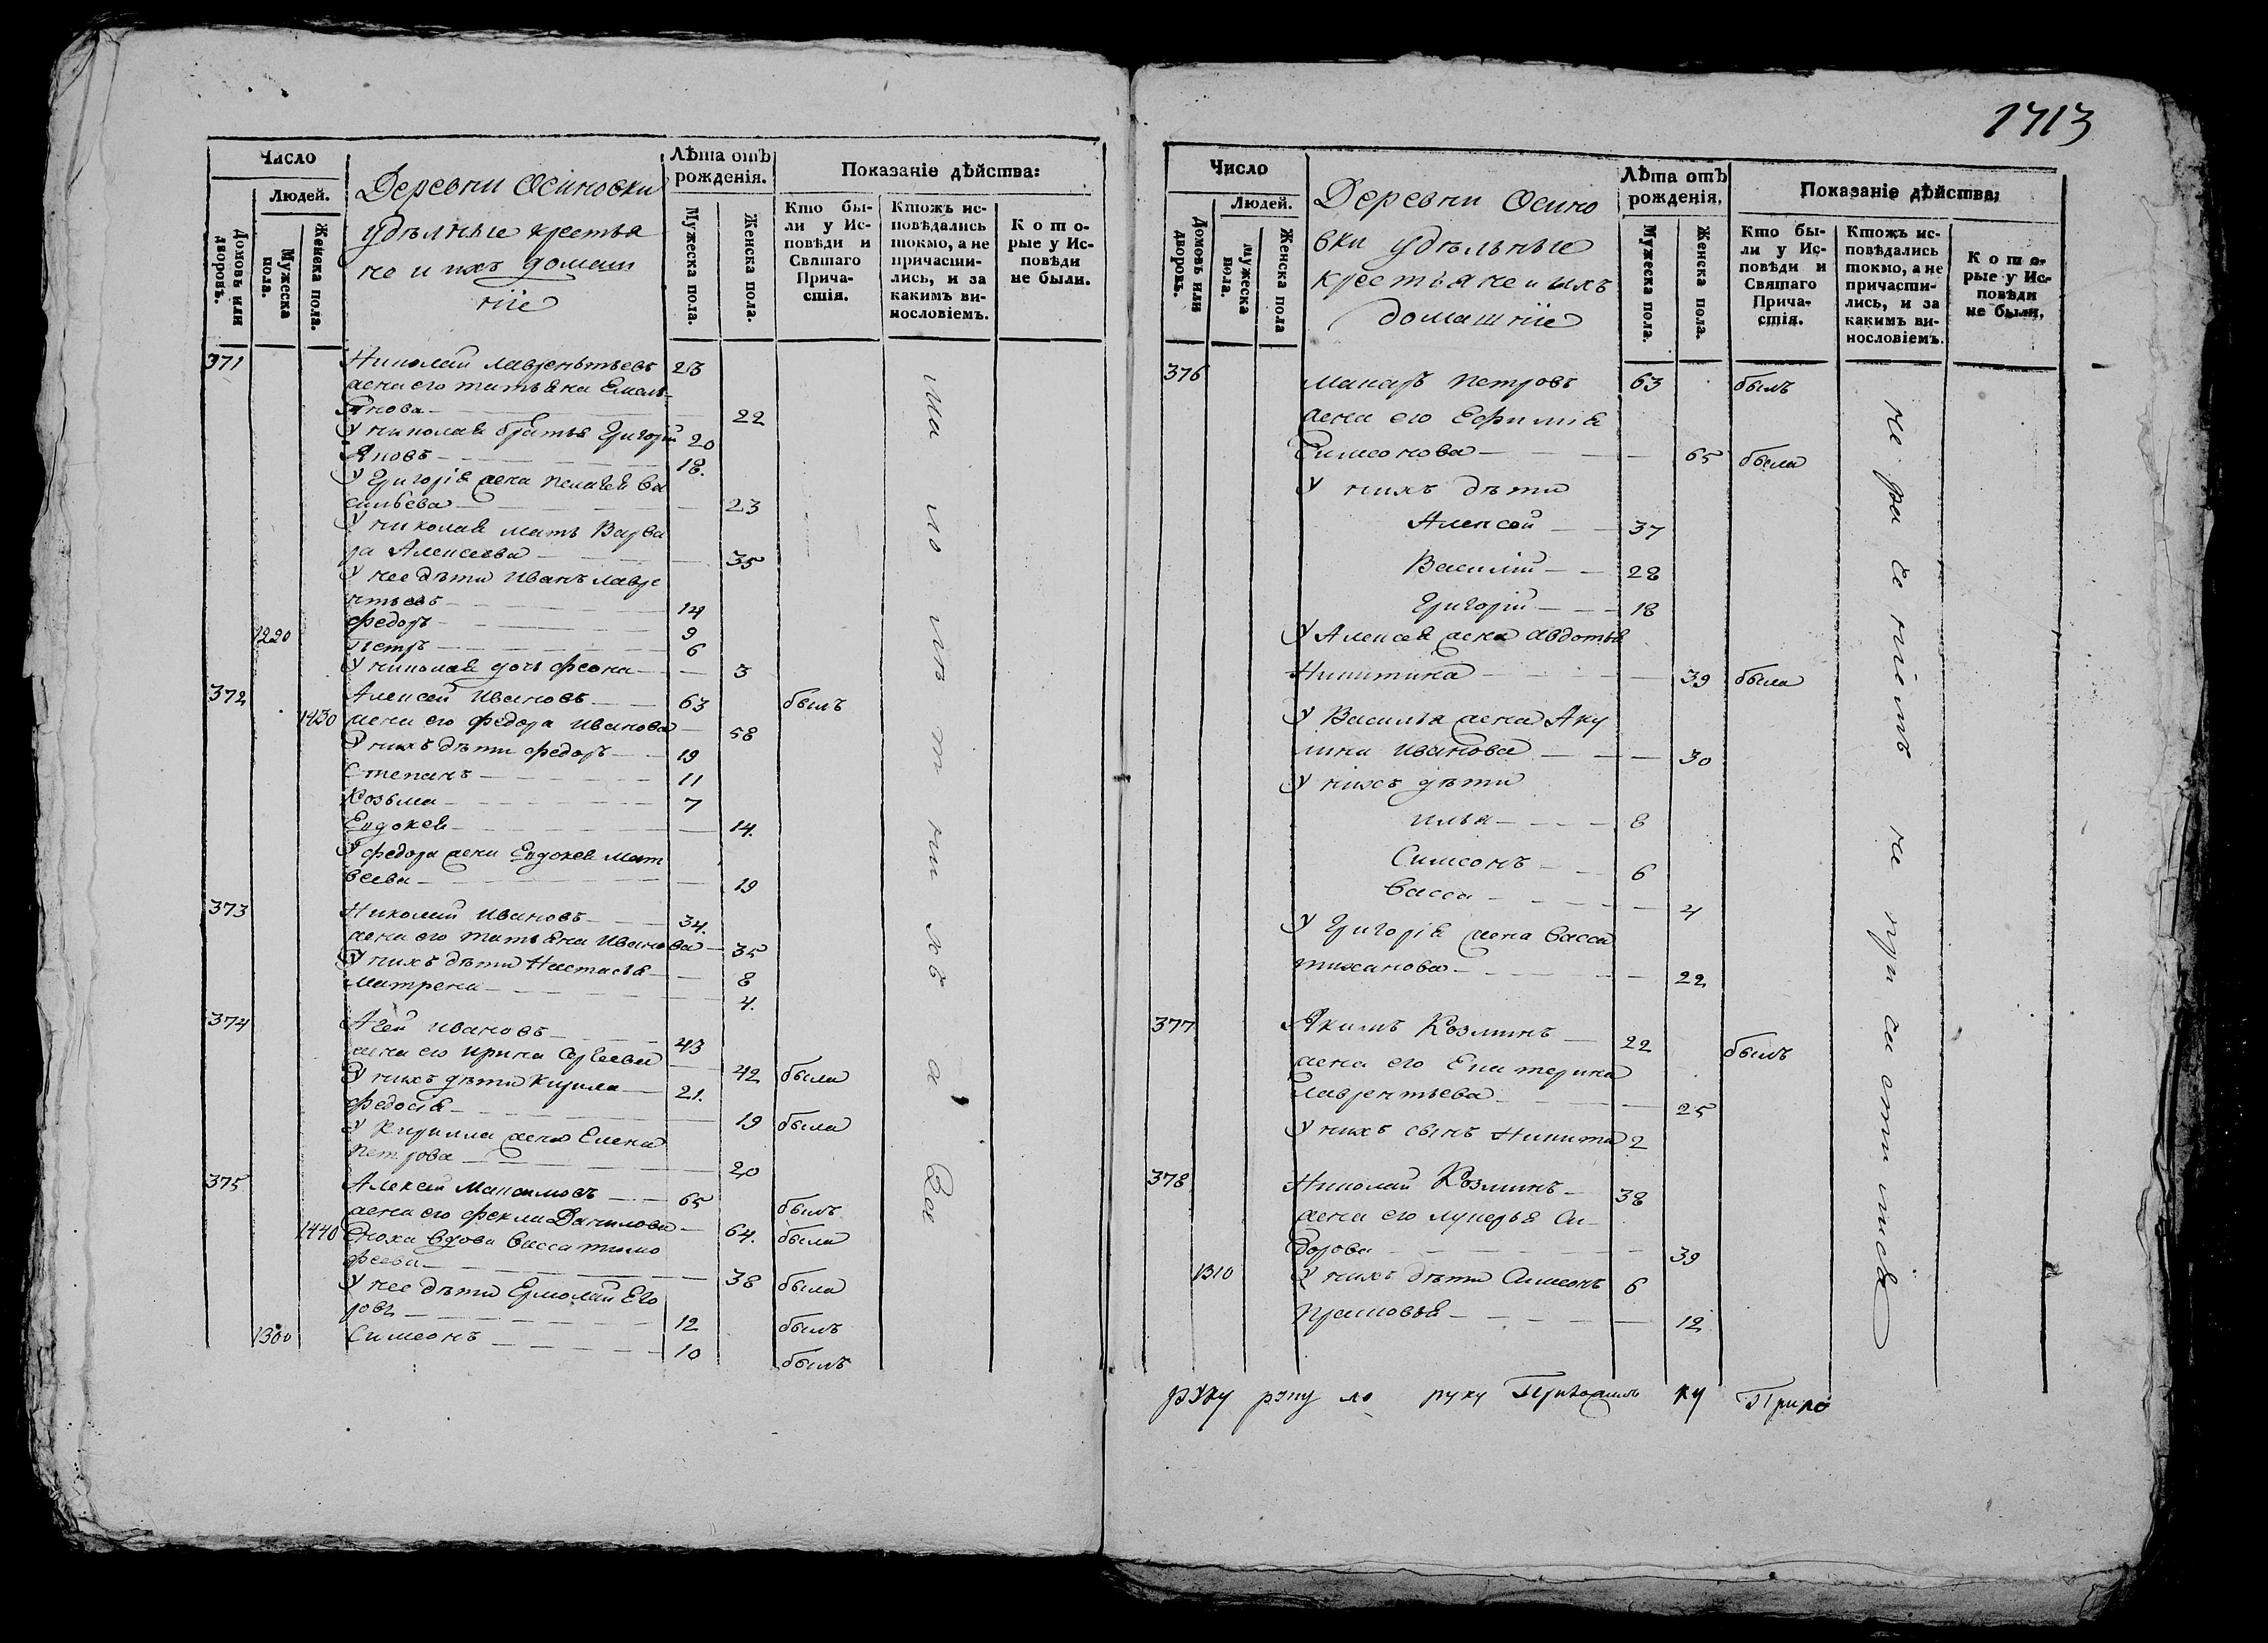 Число
Людей.
Домовъ или дворовъ.
Мужеска пола.
Женска пола.
Деревни Осиновки
удѣлные крестья
не и ихъ домаш
ніе
Лѣта отъ рожденія.
Мужеска пола.
Женска пола.
Показаніе дѣйства:
Кто бы-
ли у Ис-
повѣди и
Святаго
Прича-
стія.
Ктожъ ис-
повѣдались
токмо, а не
причасти-
лись, и за
какимъ ви-
нословіемъ.
Кото-
рые у Ис-
повѣди
не были.
371 Николай Лаврентьевъ 23
жена его татьяна Емель-
янова 22
У николая братья Григорій 20
Яковъ 18.
У Григорія жена Пелагея Ва
сильева 23
У николая мать Варва
ра Алексеева 35
У нее дѣти Иванъ лавре
нтьевъ 14
Федоръ 9
1290 Петръ 6
У николая дочь феона 3
372 Алексей Ивановъ 63 былъ
1430 жена его федора Иванова 58
У нихъ дѣти федоръ 19
Степанъ 11
Козьма 7
Евдокея 14.
У федора жена Евдокея Мат
веева 19
373 Николай Ивановъ 34.
жена его татьяна Иванова 35
У нихъ дѣти Настасья 8
Матрена 4.
374 Агей Ивановъ 43
жена его ирина Сергеева 42 была
У нихъ дѣти Кирила 21.
федосья 19 была
У Кирилла жена Елена
петрова 20
375 Алексей Максимовъ 65 былъ
1440 жена его фекла Данилова 64. была
Сноха вдова Васса тимо
феева 38 была
У нее дѣти Ермолай Его
ровъ 12 былъ
1300 Симеонъ 10 былъ
1713
Число
Людей.
Домовъ или дворовъ.
Мужеска пола.
Женска пола
Деревни Осино
вки удѣльные
крестьяне и ихъ
домашніе
Лѣта отъ рожденія.
Мужеска пола.
Женска пола.
Показаніе дѣйства:
Кто бы-
ли у Ис-
повѣди и
Святаго
Прича-
стія.
Ктожъ ис-
повѣдались
токмо, а не
причасти-
лись, и за
какимъ ви-
нословіемъ.
Кото-
рые у Ис-
повѣди
не были.
376 Макаръ Петровъ 63 былъ
жена его Ефимія
Симеонова 65 была
У нихъ дѣти
Алексей 37
Василій 28
Григорій 18
У Алексея жена Авдотья
Никитина 39 была
У Василья жена Аку
лина Иванова 30
У нихъ дѣти
Илья 8
Симеонъ 6
Васса 4
У Григорія жена Васса
тиханова 22
377 Якимъ Козминъ 22 былъ
жена его Екатерина
Лаврентьева 25
У нихъ сынъ Никита 2
378 Николай Козминъ 38
жена его лукерья Си-
дорова 39
1310 У нихъ дѣти Симеонъ 6
Прасковья 12
не раченіемъ не причастился
руку
руку Приходилъ ку Прило